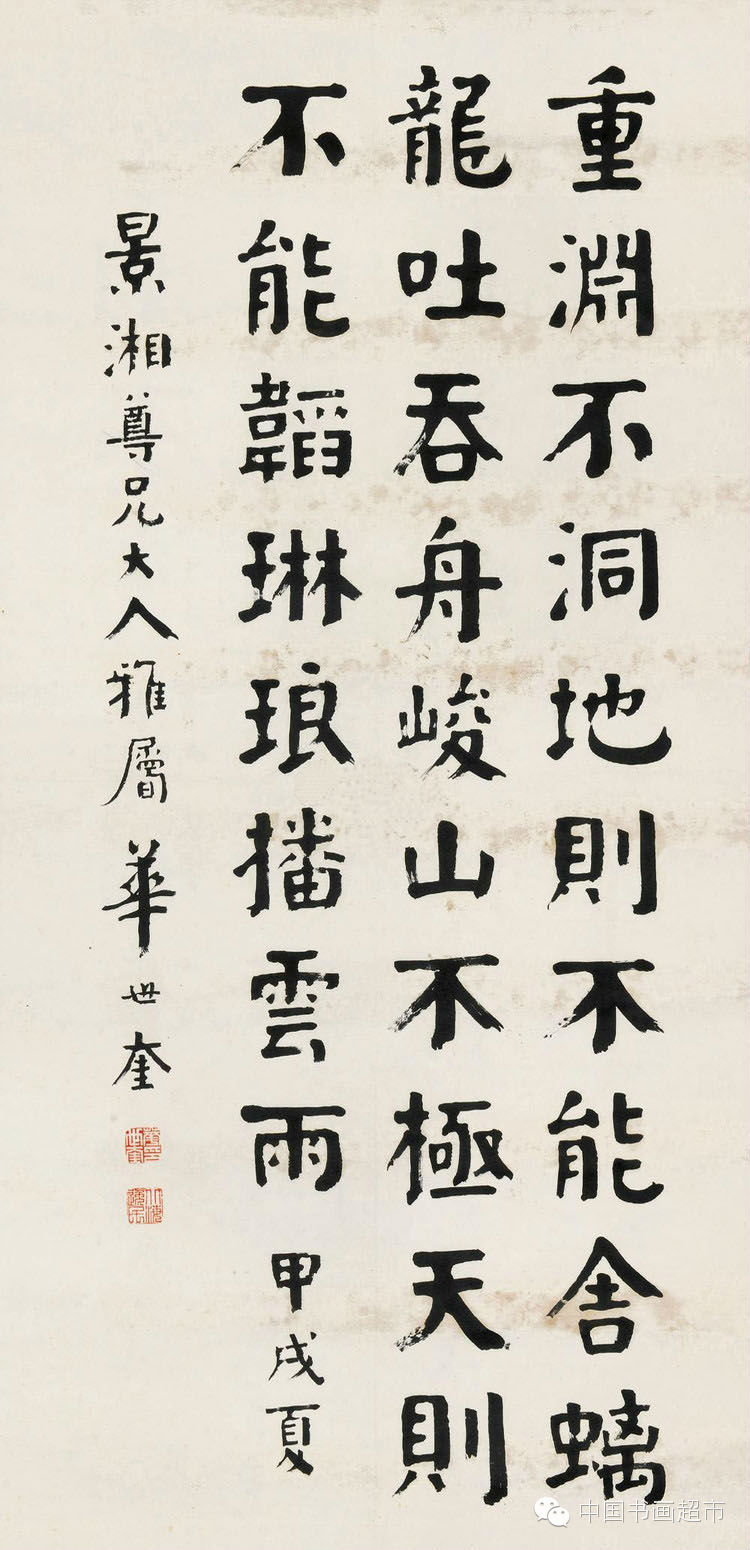 重淵不洞地則不能舍螭
龍吐吞舟峻山不極天則
不能韜琳琅播雲雨 甲戌夏
景湘尊兄大人雅屬 華世奎
中国书画超市